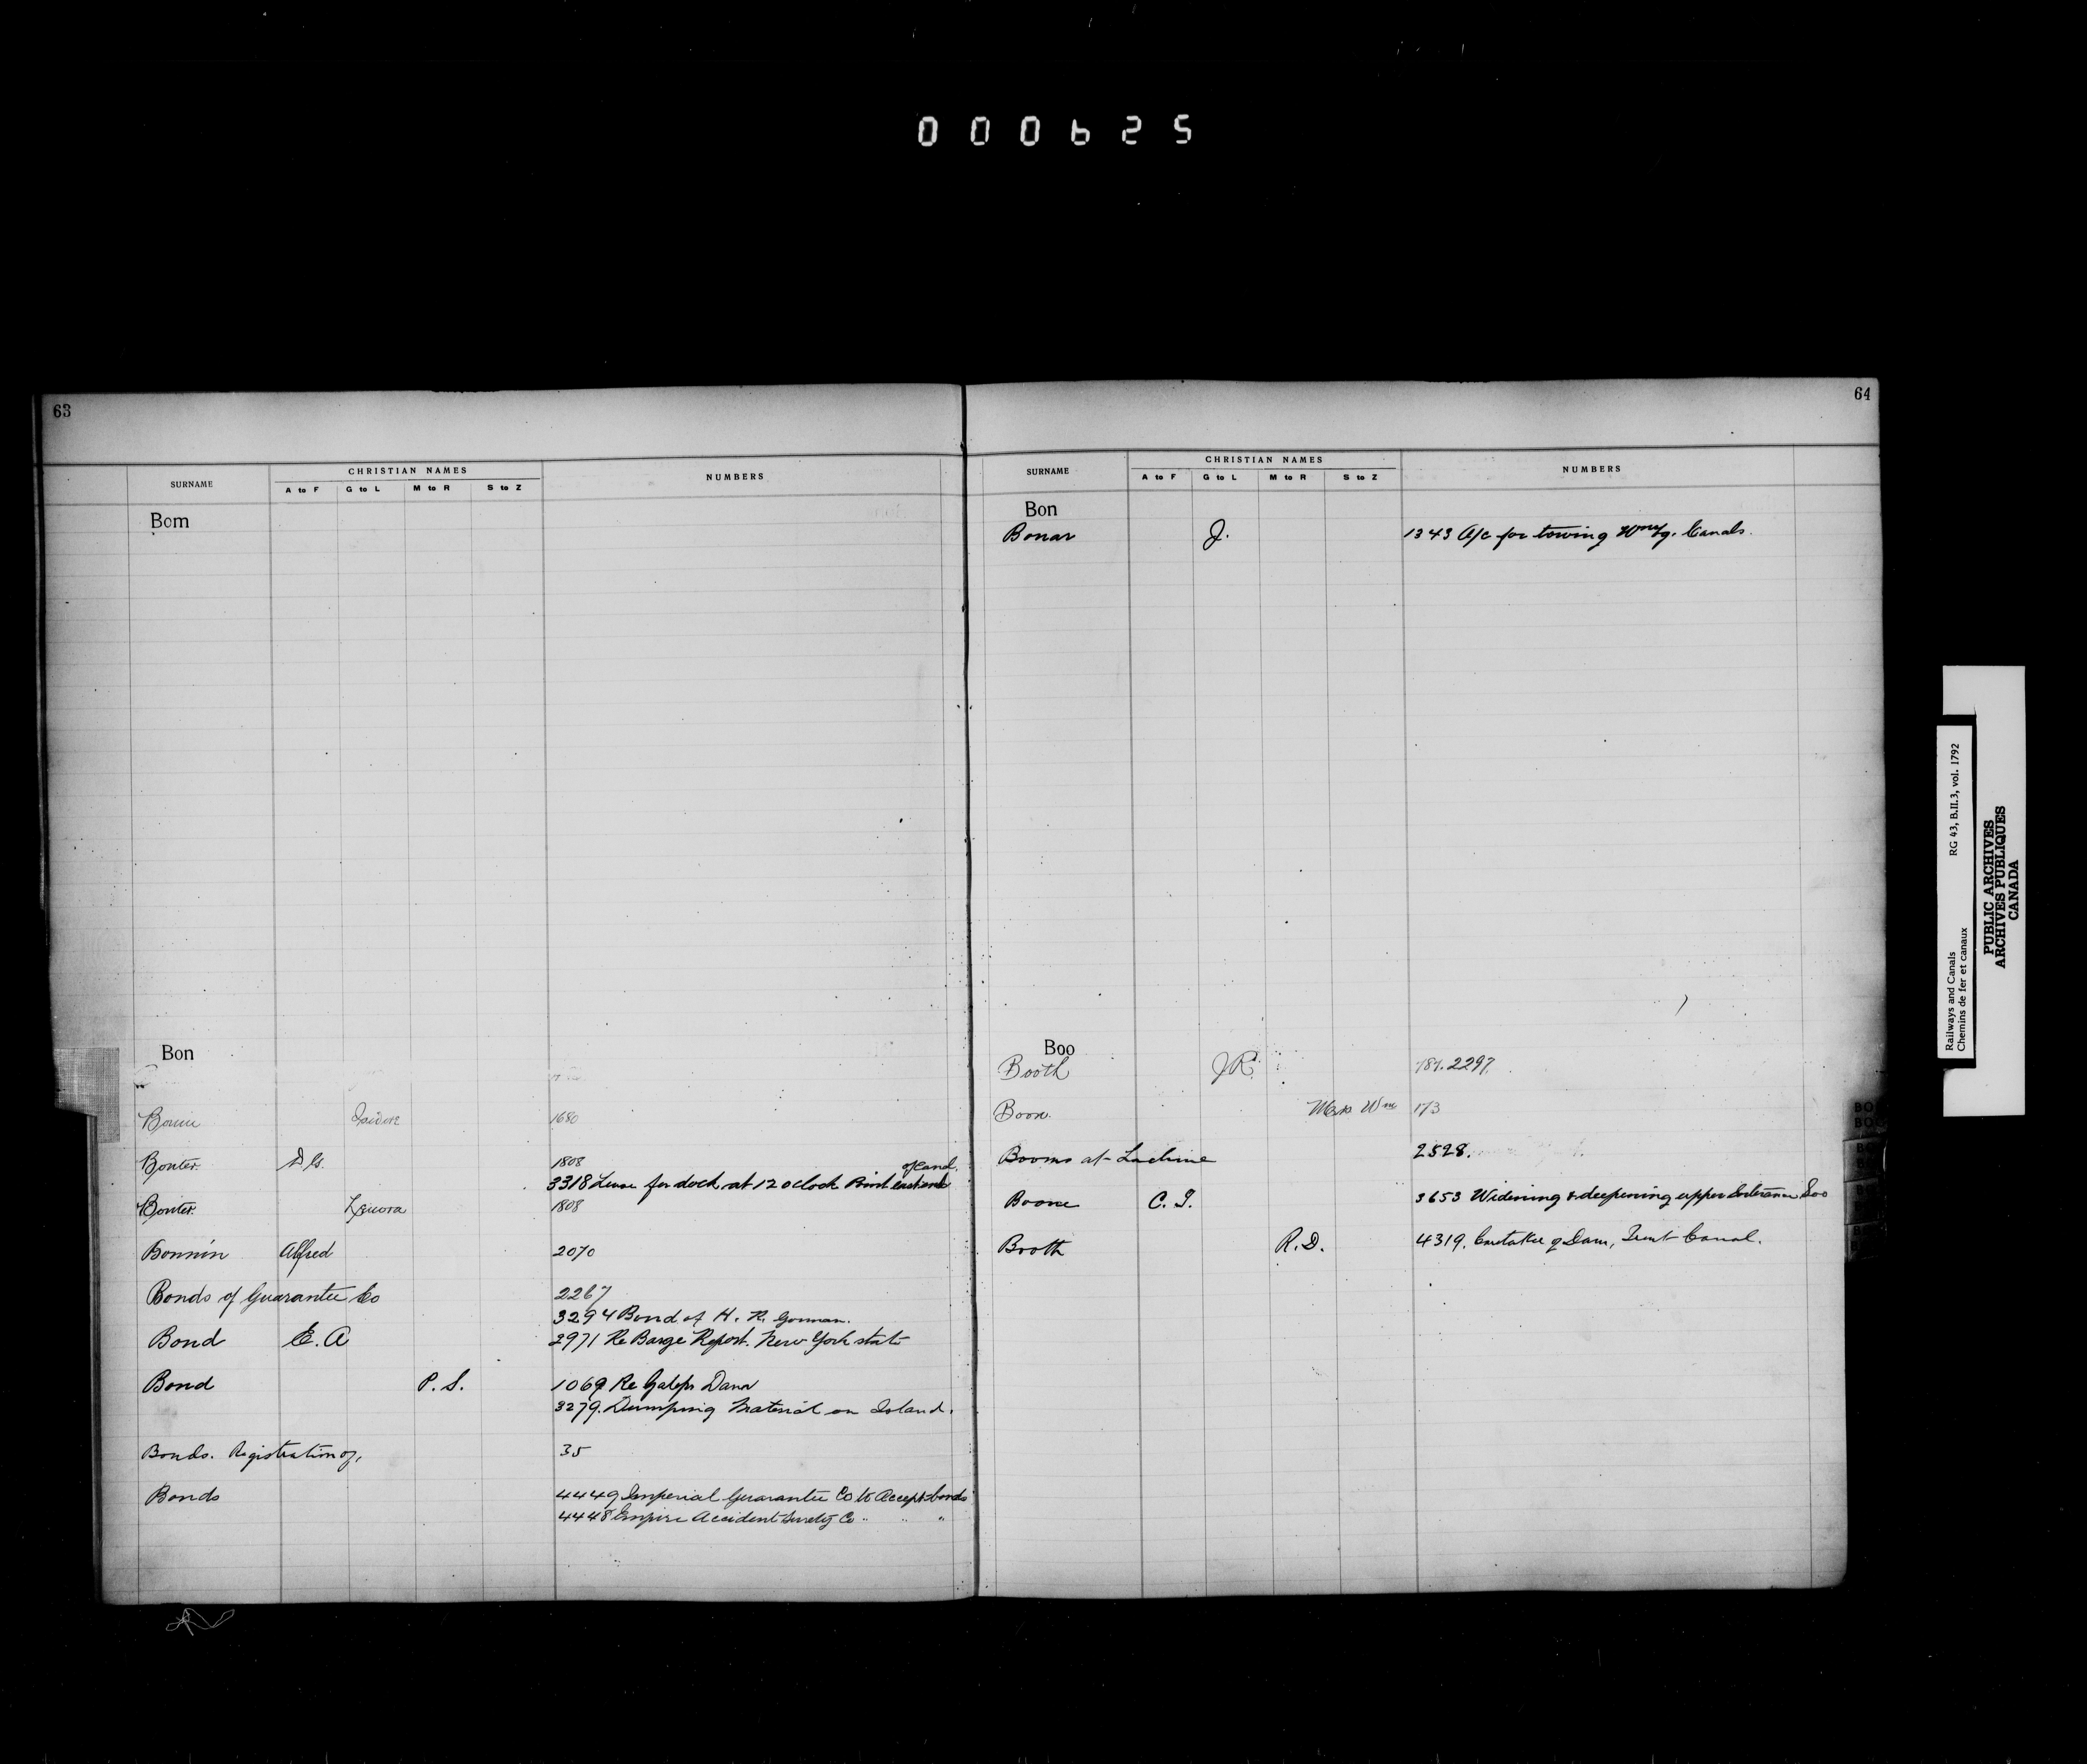 000625
63
SURNAME
CHRISTIAN NAMES
A to F G to L M to R S to Z
NUMBERS
Bom
Bon
Isidore 1680
Bonter D G. 1808
of canal.
3318 Lease for dock at 12 oclock Point east end
Bonter 1808
Bonnin Alfred 2070
Bonds of Guarantee Co 2267
3294 Bond of H. R. Gorman.
Bond E. A 2971 Re Barge Report. New York state
Bond P. S. 1069 Re Galops Dam
3279. Dumping Material on Island.
Bonds. Registration of, 35
Bonds 4449 Imperial Guarantee Co to Accept bonds
4448 Empire Accident Surety Co " " "
64
SURNAME
CHRISTIAN NAMES
A to F G to L M to R S to Z
NUMBERS
Bon
Bonar J. 1343 A/c for towing Canals.
Boo
Booth J R. 787. 2297.
Boon. Mrs Wm 173
Booms at Lachine 2528.
Boone C. I. 3653 Widening & deepening upper Entrance Soo
Booth R. D. 4319. Caretaker of Dam, Trent Canal.
Railways and Canals RG 43, B.II.3, vol. 1792
Chemins de fer et canaux
PUBLIC ARCHIVES
ARCHIVES PUBLIQUES
CANADA